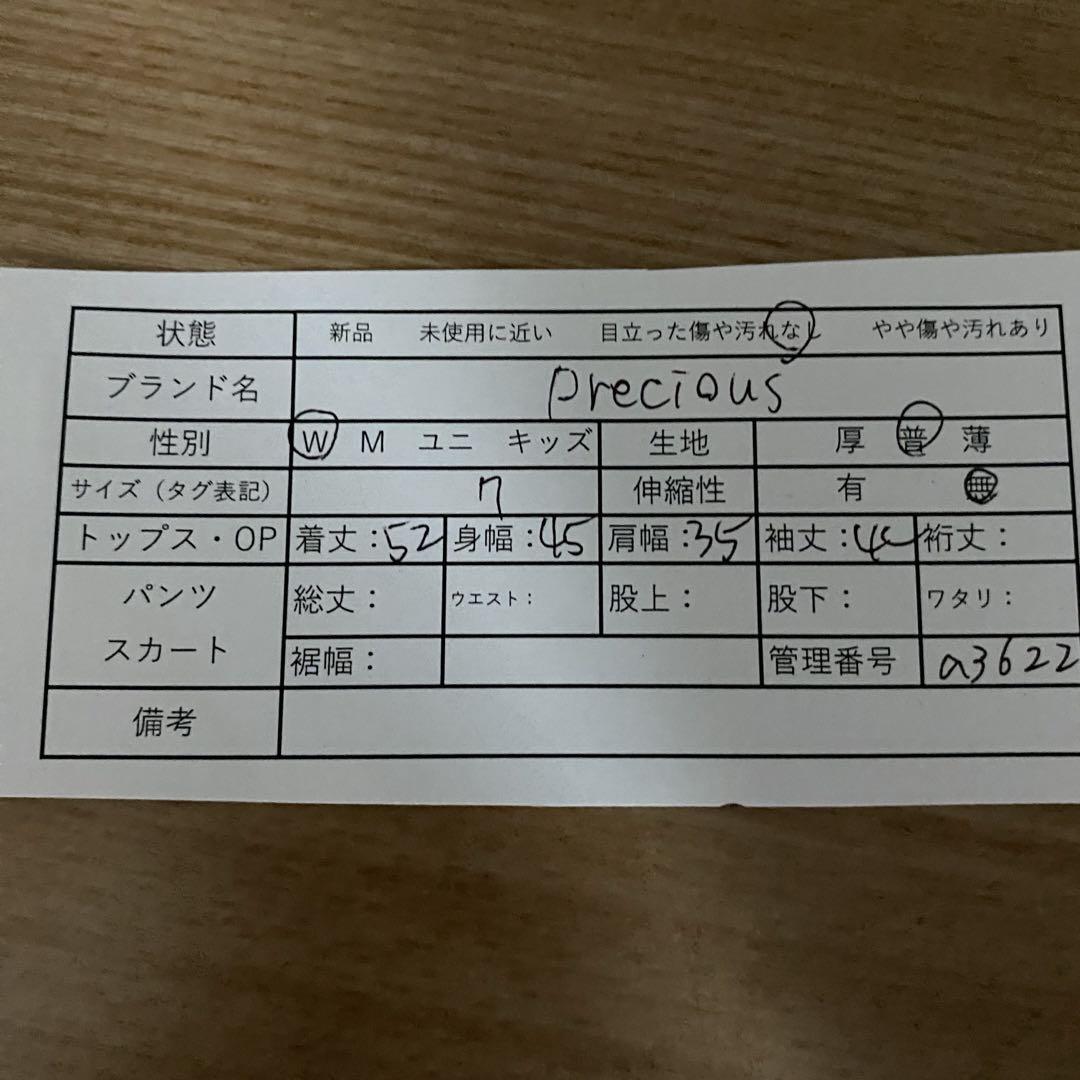 状態 新品 未使用に近い 目立った傷や汚れなし やや傷や汚れあり
ブランド名 precious
性別 W M ユニ キッズ 生地 厚 普 薄
サイズ（タグ表記） 7 伸縮性 有 無
トップス・OP 着丈：52 身幅：45 肩幅：35 袖丈： 裄丈：
パンツ スカート 総丈： ウエスト： 股上： 股下： ワタリ：
裾幅： 管理番号 a3622
備考